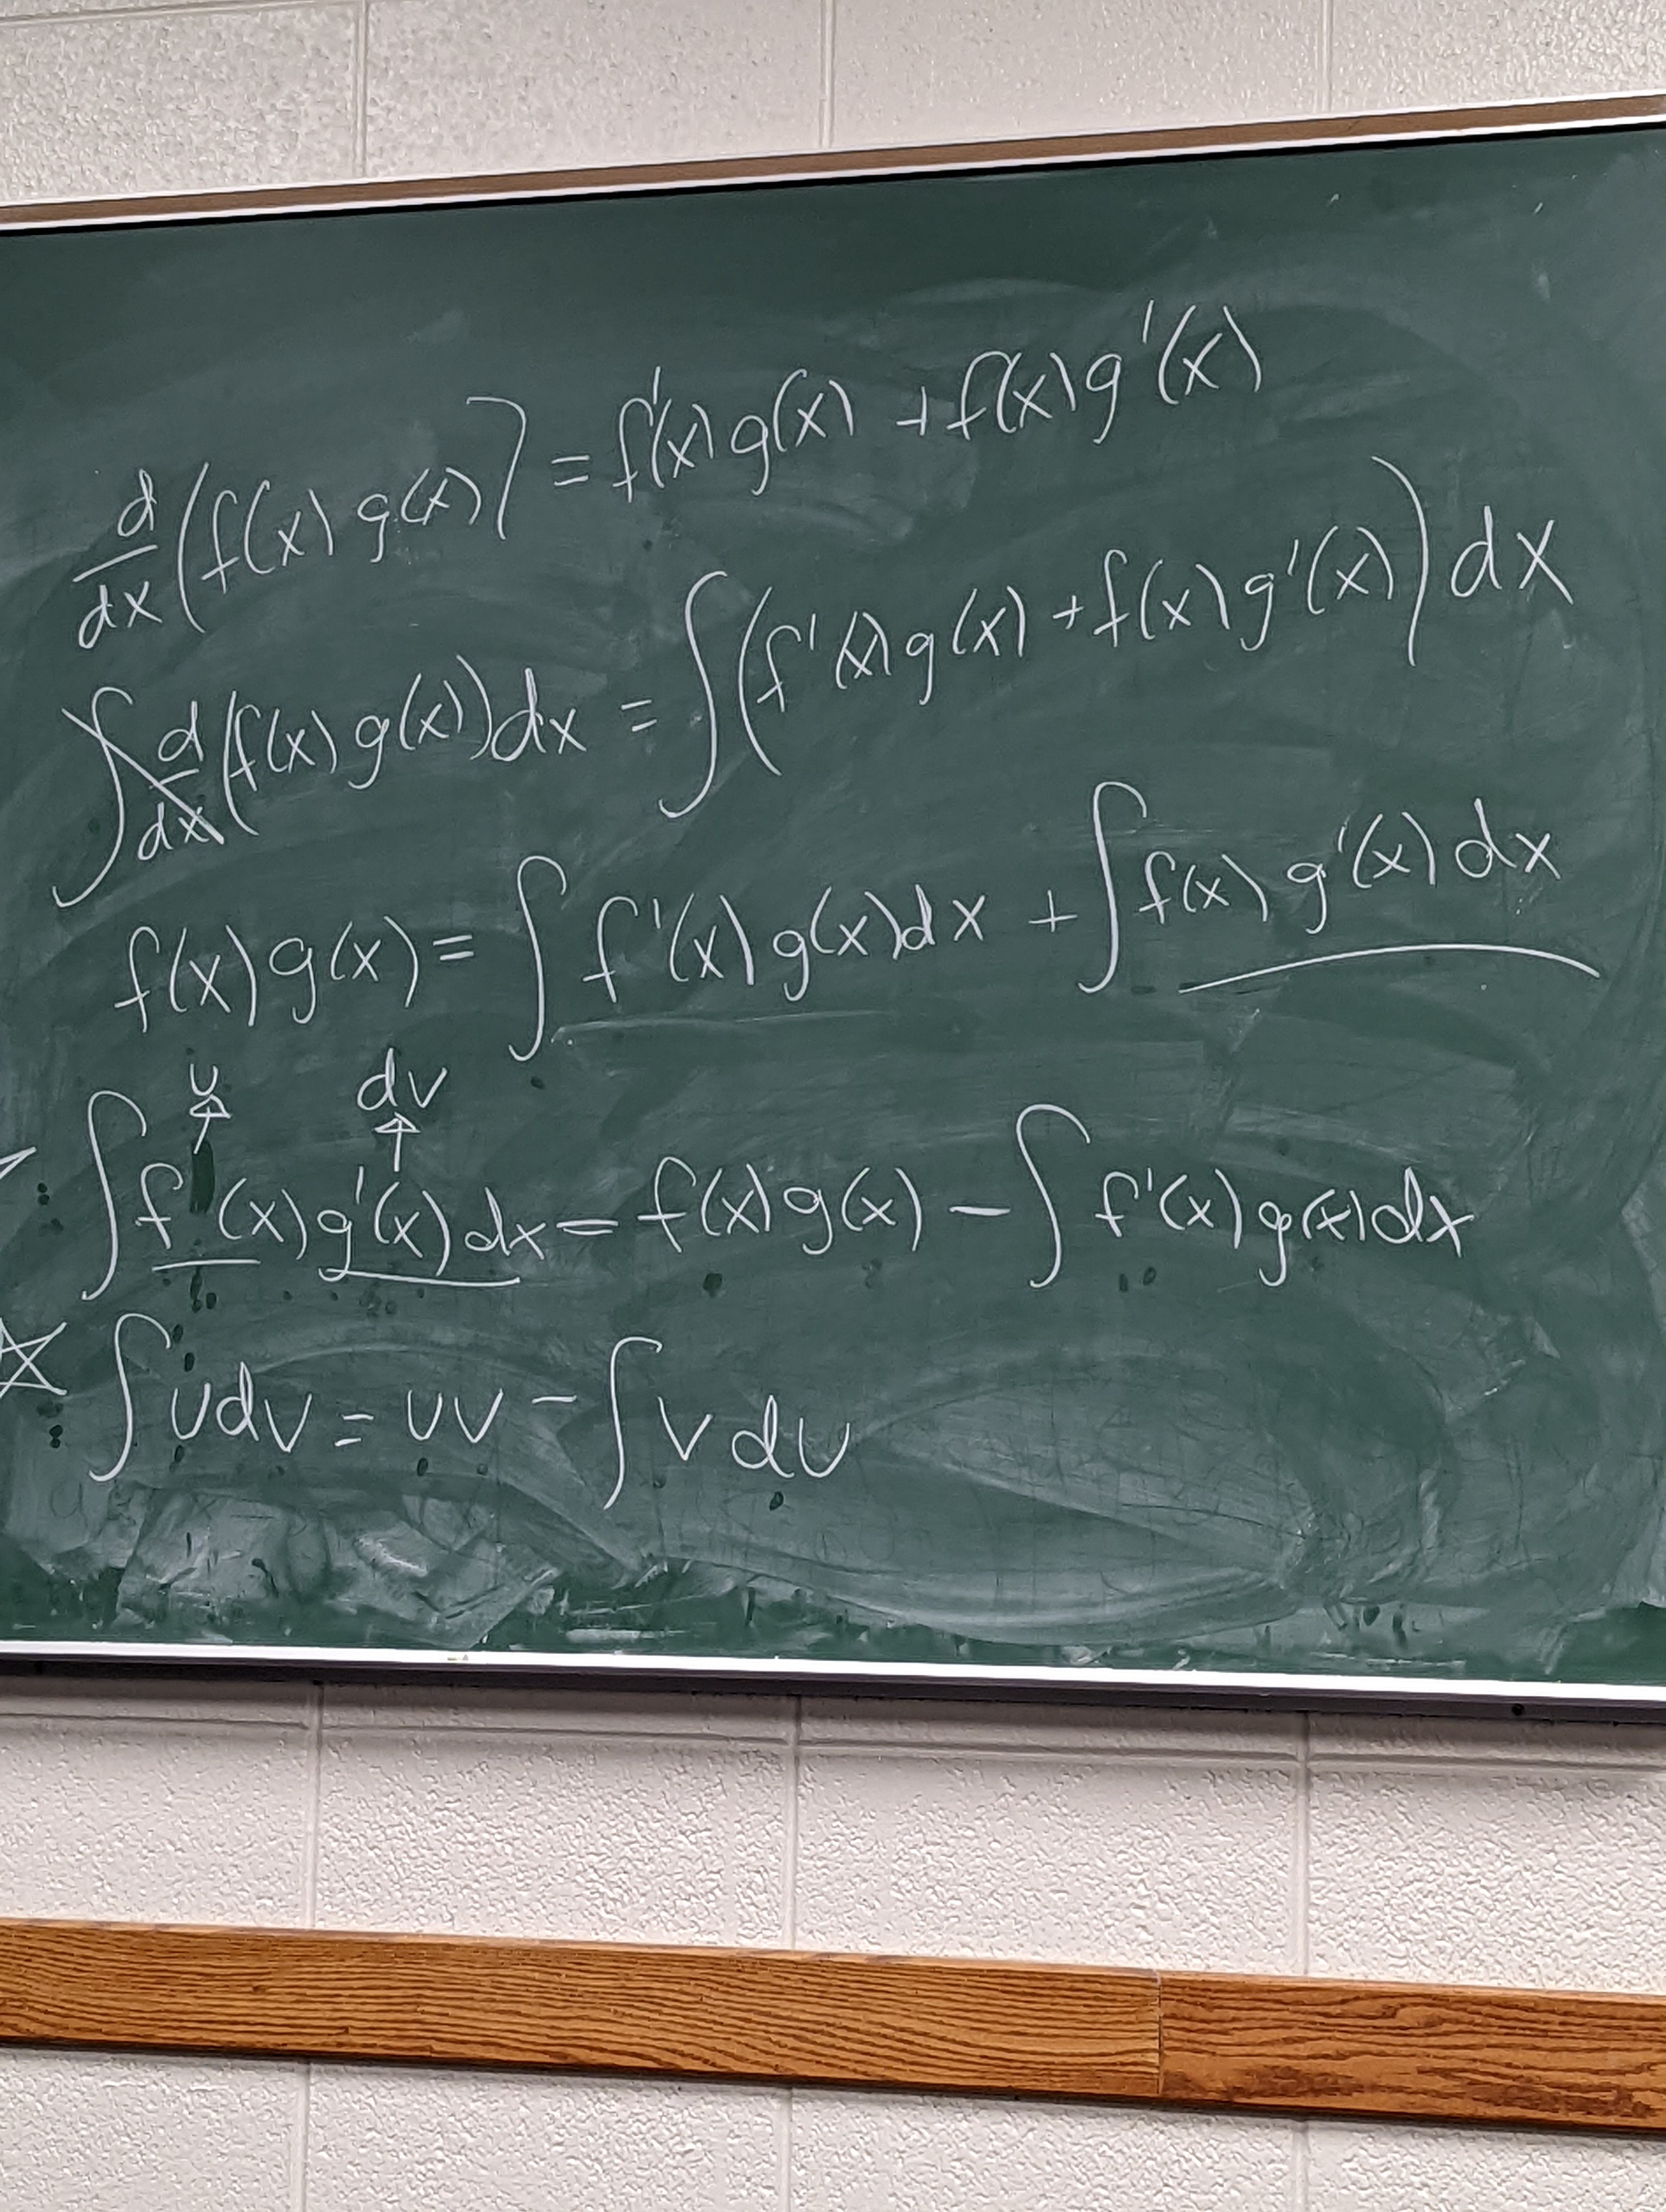 d/dx (f(x) g(x)) = f'(x) g(x) + f(x) g'(x)
∫ d/dx (f(x) g(x)) dx = ∫ (f'(x) g(x) + f(x) g'(x)) dx
f(x) g(x) = ∫ f'(x) g(x) dx + ∫ f(x) g'(x) dx
u dv
∫ f (x) g'(x) dx = f(x) g(x) − ∫ f'(x) g(x) dx
☆ ∫ u dv = uv − ∫ v du